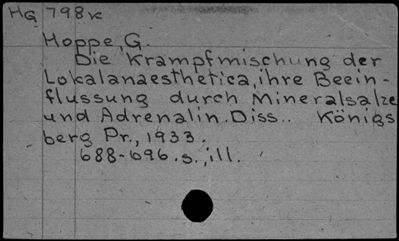 HG 798k
Hoppe, G.
Die Krampfmischung der
Lokalanaesthetica, ihre Beein-
flussung durch Mineralsalze
und Adrenalin. Diss.. Königs
berg Pr., 1933.
688-696.s., ill.